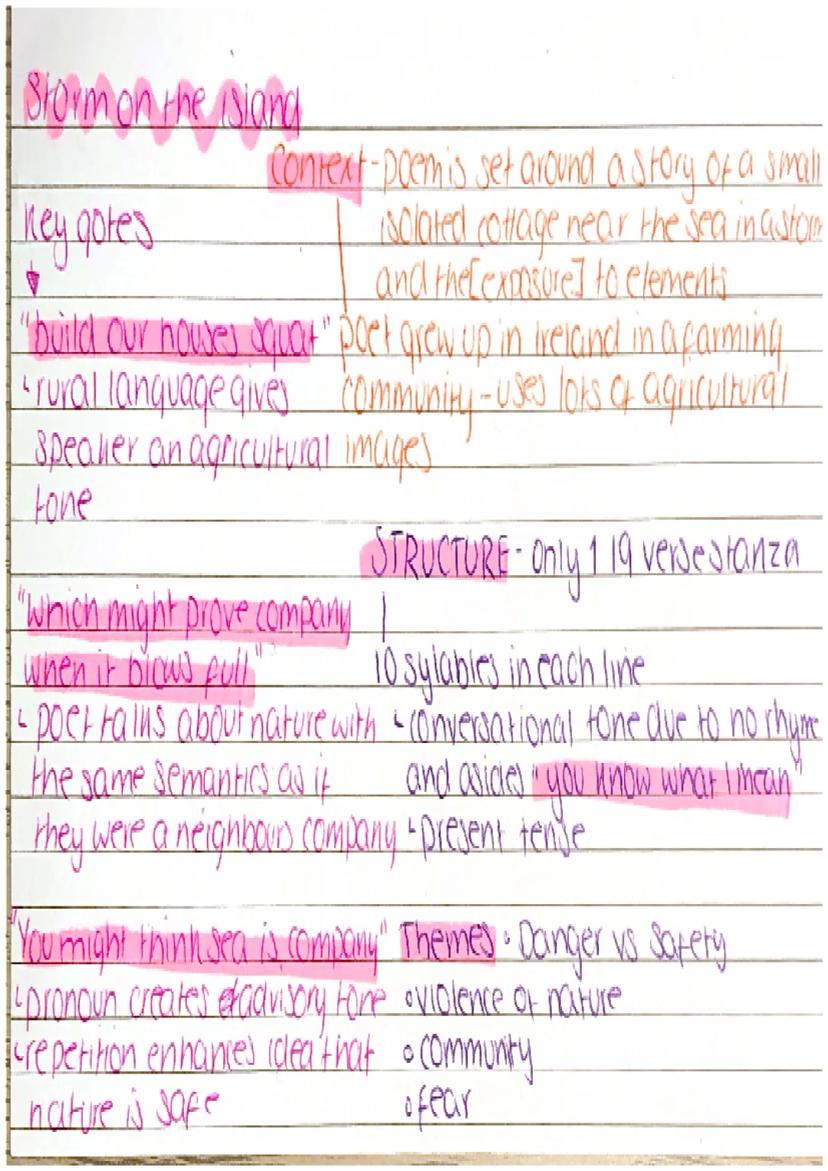 Storm on the island
Context - poem is set around a story of a small
isolated cottage near the sea in a storm
and the [exposure] to elements
poet grew up in Ireland in a farming
community - uses lots of agricultural
images
key qotes
"build our houses squat"
rural language gives
speaker an agricultural
tone
STRUCTURE - only 1 19 verse stanza
10 sylables in each line
conversational tone due to no rhyme
and asides "you know what I mean"
present tense
"which might prove company
when it blows full"
poet talks about nature with
the same semantics as if
they were a neighbours company
"You might think sea is company"
pronoun creates advisory tone
repetition enhances idea that
nature is safe
Themes • Danger vs Safety
• violence of nature
• community
• fear